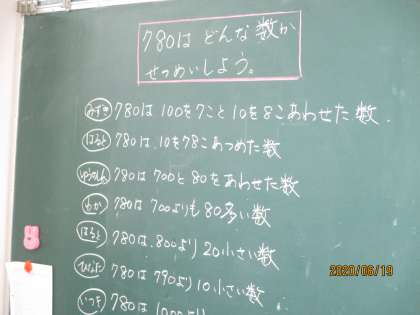 780は どんな数か
せつめいしよう。
みずき 780は 100を7こと 10を8こあわせた数
はると 780は、10を78こあつめた数
780は 700と 80をあわせた数
780は 700よりも 80多い数
はると 780は、800より 20小さい数
ひなた 780は 790より 10小さい数
いつき 780は 1000より
2020/06/19